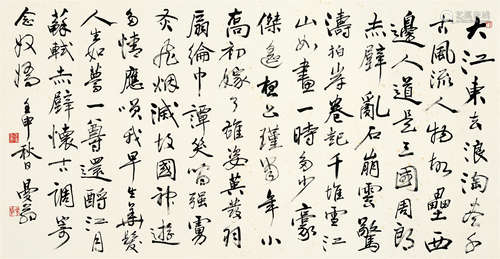 大江東去浪淘盡千
古風流人物故壘西
邊人道是三國周郎
赤壁亂石崩雲驚
濤拍岸卷起千堆雪江
山如畫一時多少豪
傑遙想公瑾當年小
喬初嫁了雄姿英發羽
扇綸巾譚笑間强虜
灰飛烟滅故國神遊
多情應我早生華髮
人生如夢一尊還酹江月
蘇軾赤壁懷古調寄
念奴嬌 壬申秋日曼翁